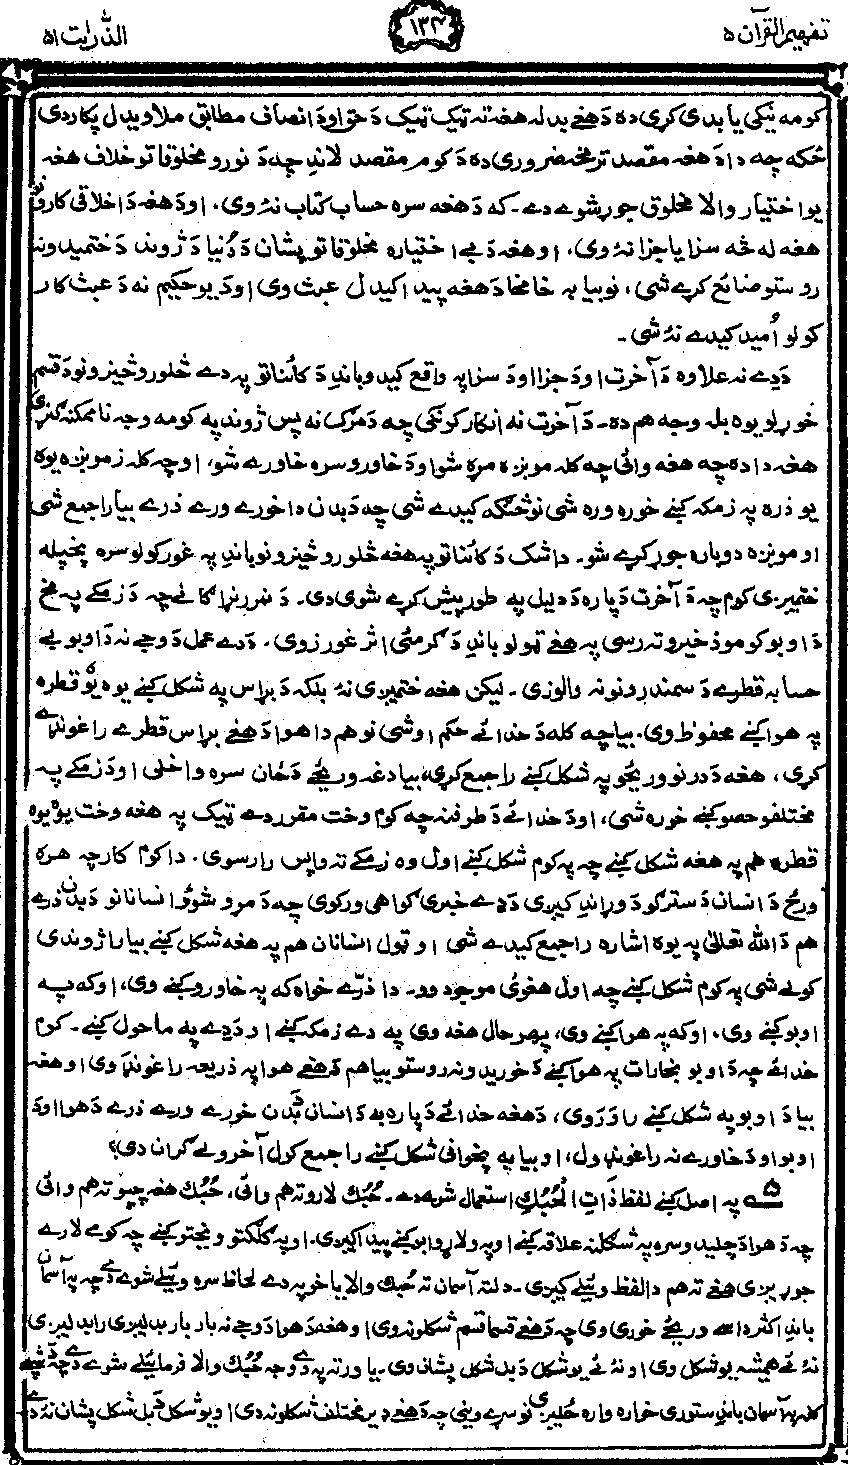 تفهيم القرآن ۵
۱۳۴
الذّٰريٰت ۵۱
كومه نيكى يا بدى كړى ده دَ هغے بدله هغهٔ ته ټيك ټيك دَ حق او دَ انصاف مطابق ملاويدل پكار دى
ځكه چه دا دَ هغهٔ مقصد ترمخه ضرورى ده دَ كوم مقصد لاندِ چه دَ نورو مخلوقاتو خلاف هغه
يو اختيار والا مخلوق جوړ شوے دے۔ كه دَ هغهٔ سره حساب كتاب نهٔ وى، او دَ هغهٔ دَ اخلاقى كارونو
هغه له څه سزا يا جزا نهٔ وى، او هغه دَ بے اختياره مخلوقاتو پشان دَ دُنيا دَ ژوند دَ ختميدو نه
روستو ضائع كړے شى، نو بيا به خامخا دَ هغهٔ پيدا كيدل عبث وى او دَ يو حكيم نه دَ عبث كار
كولو اُميد كيدے نهٔ شى۔
دَ دِے نه علاوه دَ آخرت او دَ جزا او دَ سزا په واقع كيدو باندِ دَ كائناتو په دے څلورو څيزونو دَ قسم
خوړلو يوه بله وجه هم ده۔ دَ آخرت نه انكار كونكى چه دَ مرګ نه پس ژوند په كومه وجه ناممكنه ګنړى
هغه دا ده چه هغه وائى چه كله مونږه مړهٔ شو او دَ خاورو سره خاورے شو، او چه كله زمونږه يوه
يو ذره په زمكه كښے خوره وره شى نو څنګه كيدے شى چه دَ بدن دا خورے ورے ذرے بيا راجمع شى
او مونږه دوباره جوړ كړے شو۔ دا شك دَ كائناتو په هغه څلورو څيزونو باندِ په غور كولو سره پخپله
ختميږى كوم چه دَ آخرت دَپاره دَ دليل په طور پيش كړے شوى دى۔ دَ نمر رنړا ګانے چه دَ زمكے په مخ
دَ اوبو كومو ذخيرو ته رسى په هغے ټولو باندِ دَ ګرمئ اثر غورزوى۔ دَدے عمل دَ وجے نه دَ اوبو بے
حسابه قطرے دَ سمندرونو نه والوزى۔ ليكن هغه ختميږى نهٔ بلكه دَ بړاس په شكل كښے يوه يوه قطره
په هوا كښے محفوظ وى۔ بيا چه كله دَ خدائے حكم اوشى نو هم دا هوا دَ هغے بړاس قطرے راغونډے
كړى، هغه دَ درنو وريځو په شكل كښے راجمع كړى، بيا دغه وريځے دَ ځان سره واخلى او دَ زمكے په
مختلفو حصو كښے خوره شى، او دَ خدائے دَ طرفنه چه كوم وخت مقرر دے ټيك په هغه وخت يوه يوه
قطره هم په هغه شكل كښے چه په كوم شكل كښے اول وه زمكے ته واپس رارسوى۔ دا كوم كار چه هره
ورځ دَ انسان دَ سترګو دَ وړاندِ كيږى دَدے خبرے ګواهى وركوى چه دَ مړو شوؤ انسانانو دَ بدن ذرے
هم دَ الله تعالىٰ په يوه اشاره راجمع كيدے شى او ټول انسانان هم په هغه شكل كښے بيا راژوندى
كولے شى په كوم شكل كښے چه اول هغوئ موجود وو۔ دا ذرّے خواه كه په خاورو كښے وى، او كه په
اوبو كښے وى، او كه په هوا كښے وى، بهرحال هغه وى په دے زمكه كښے او دَدے په ماحول كښے۔ كوم
خدائے چه دَ اوبو بخارات په هوا كښے دَ خوريدو نه روستو بيا هم دَ هغے هوا په ذريعه راغونډوى او هغه
بيا دَ اوبو په شكل كښے راوَروى، دَ هغه خدائے دَپاره به دَ انسان دَ بدن خورے ورے ذرے دَ هوا او دَ
اوبو او دَ خاورے نه راغونډول، او بيا په پخوانى شكل كښے راجمع كول آخر ولے ګران دى؟
۵ په اصل كښے لفظ ذَاتِ الْحُبُكِ استعمال شوے دے۔ حُبُك لارو ته هم وائى، حُبُك هغه چپو ته هم وائى
چه دَ هوا دَ چليدو سره په شګلنه علاقه كښے او په ولاړو اوبو كښے پيدا كيږى۔ او په ګنګټو ويښتو كښے چه كومے لارے
جوړيږى هغے ته هم دا لفظ ويئلے كيږى۔ دلته آسمان ته حُبك والا يا خو په دے لحاظ سره ويئلے شوے دے چه په آسمان
باندِ اكثر داسے وريځے خورى وى چه دَ هغے قسما قسم شكلونه وى او هغه دَ هوا دَ وجے نه بار بار بدليږى رابدليږى
نهٔ ئے هميشه يو شكل وى او نهٔ ئے يو شكل دَ بل شكل پشان وى۔ يا ورته په دے وجه حُبُك والا فرمائيلے شوے دے چه دَ شپے
كله په آسمان باندِ ستورى خواره واره ځليږى نو سړے وينى چه دَ هغے ډير مختلف شكلونه دى او يو شكل دَ بل شكل پشان نهٔ دے